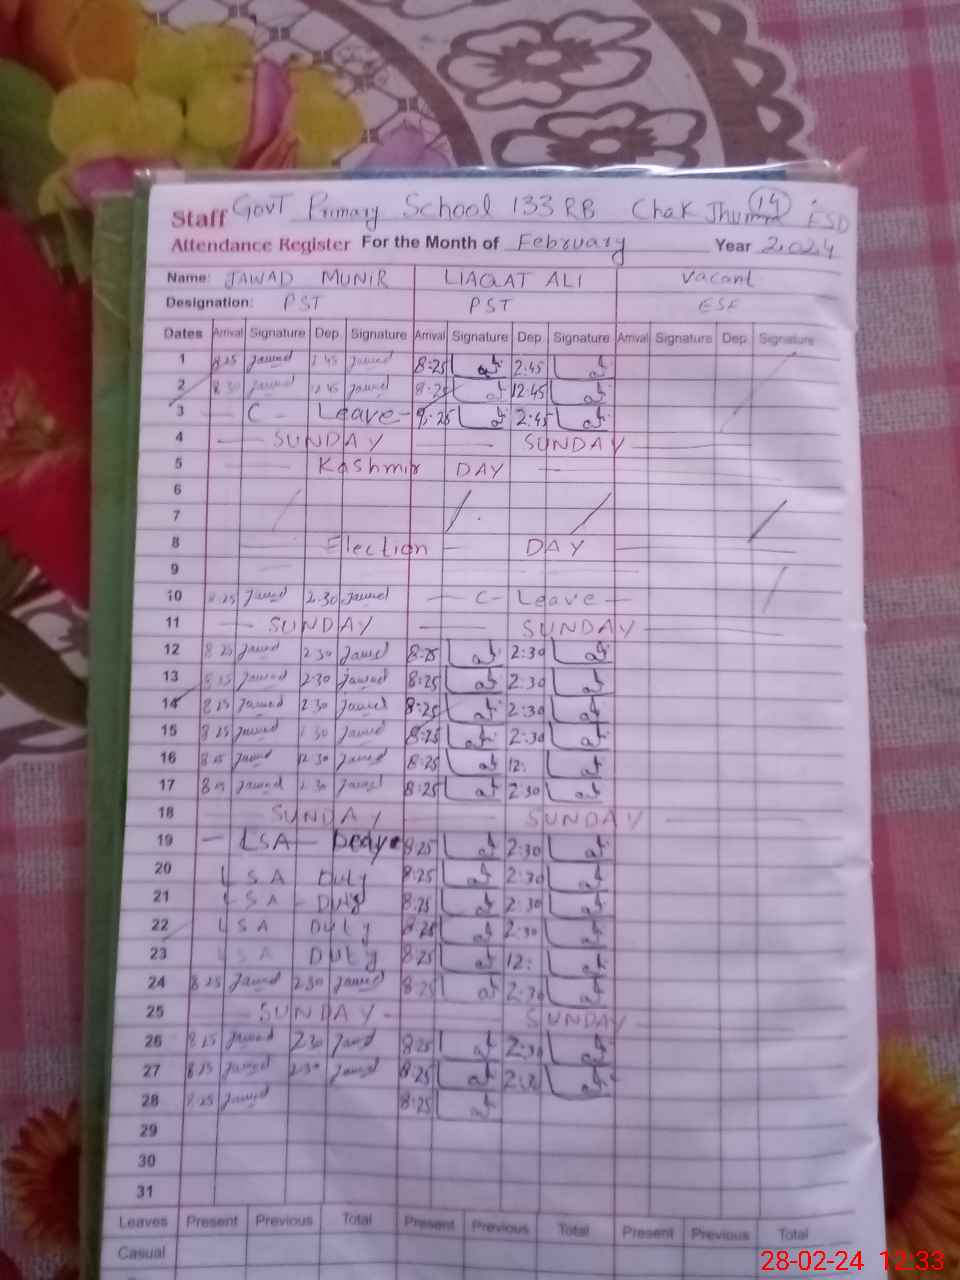 Staff GovT Primary School 133 RB Chak Jhumra 14 FSD
Attendance Register For the Month of February Year 2024
Name: JAWAD MUNIR LIAQAT ALI Vacant
Designation: PST PST ESE
Dates Arrival Signature Dep. Signature Arrival Signature Dep. Signature Arrival Signature Dep. Signature
1 8.25 Jawad 2.45 Jawad 8:25 2:45
2 8.30 Jawad 12.45 Jawad 8:25 12:45
3 C - Leave - 8:25 2:45
4 SUNDAY SUNDAY
5 Kashmir DAY
6
7
8 Election DAY
9
10 8.25 Jawad 2.30 Jawad C - Leave
11 SUNDAY SUNDAY
12 8.25 Jawad 2.30 Jawad 8:25 2:30
13 8.25 Jawad 2.30 Jawad 8:25 2:30
14 8.25 Jawad 2.30 Jawad 8:25 2:30
15 8.25 Jawad 2.30 Jawad 8:25 2:30
16 8.25 Jawad 12.30 Jawad 8:25 12:
17 8.25 Jawad 2.30 Jawad 8:25 2:30
18 SUNDAY SUNDAY
19 - LSA - 8:25 2:30
20 LSA Duty 8:25 2:30
21 LSA - Duty 8:25 2:30
22 LSA Duty 8:25 2:30
23 LSA Duty 8:25 12:
24 8.25 Jawad 2.30 Jawad 8:25 2:30
25 SUNDAY SUNDAY
26 8.25 Jawad 2.30 Jawad 8:25 2:30
27 8.25 Jawad 2.30 Jawad 8:25 2:30
28 8.25 Jawad 8:25
29
30
31
Leaves Present Previous Total Present Previous Total Present Previous Total
Casual
28-02-24 12:33